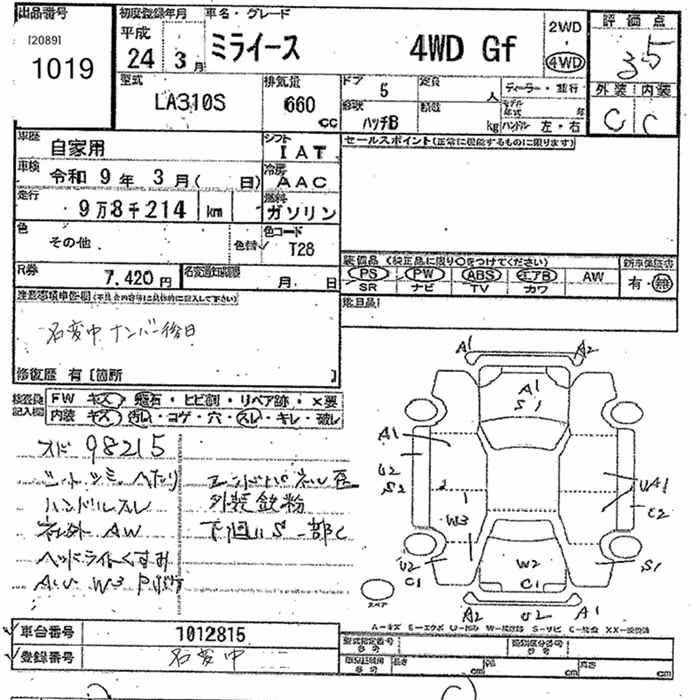 出品番号
[2089]
1019
初度登録年月
平成
24年 3月
車名・グレード
ミライース 4WD Gf
2WD
・
4WD
評価点
3.5
外装 内装
C C
型式
LA310S
排気量
660
cc
ドア
5
定員
人
形状
ハッチB
積載
kg
ディーラー・並行
モデル年式 年
ハンドル 左・右
車歴
自家用
シフト
IAT
車検
令和 9年 3月( 日)
冷房
AAC
走行
9万8千214 km
燃料
ガソリン
色
その他
色替
色コード
T28
R券
7,420円
名変期限 月 日
セールスポイント(正常に機能するものに限ります)
装備品 (純正品に限り○をつけてください)
PS PW ABS エアB AW
SR ナビ TV カワ
新車保証書
有・無
注意事項申告欄
名変中 ナンバー後日
修復歴 有 [箇所
検査員記入欄
FW キズ・飛石・ヒビ割・リペア跡・X要
内装 キズ・汚れ・コゲ・穴・スレ・キレ・破レ
メーター 98215
シートシミ、へたり
ハンドルスレ
社外AW
ヘッドライトくすみ
エンドパネル歪
外装鉄粉
下廻りS 一部C
A1 A2
A1
S1
A1
U2
S2
2
W3
UA1
C2
U2
C1
W2
C1
S1
A2 U2 A1
スペア
A-キズ E-エクボ U-凹み W-補修跡 S-サビ C-腐食 XX-交換済
車台番号
1012815
登録番号
名変中
型式指定番号
参考
類別区分番号
参考
長さ cm
幅 cm
高さ cm